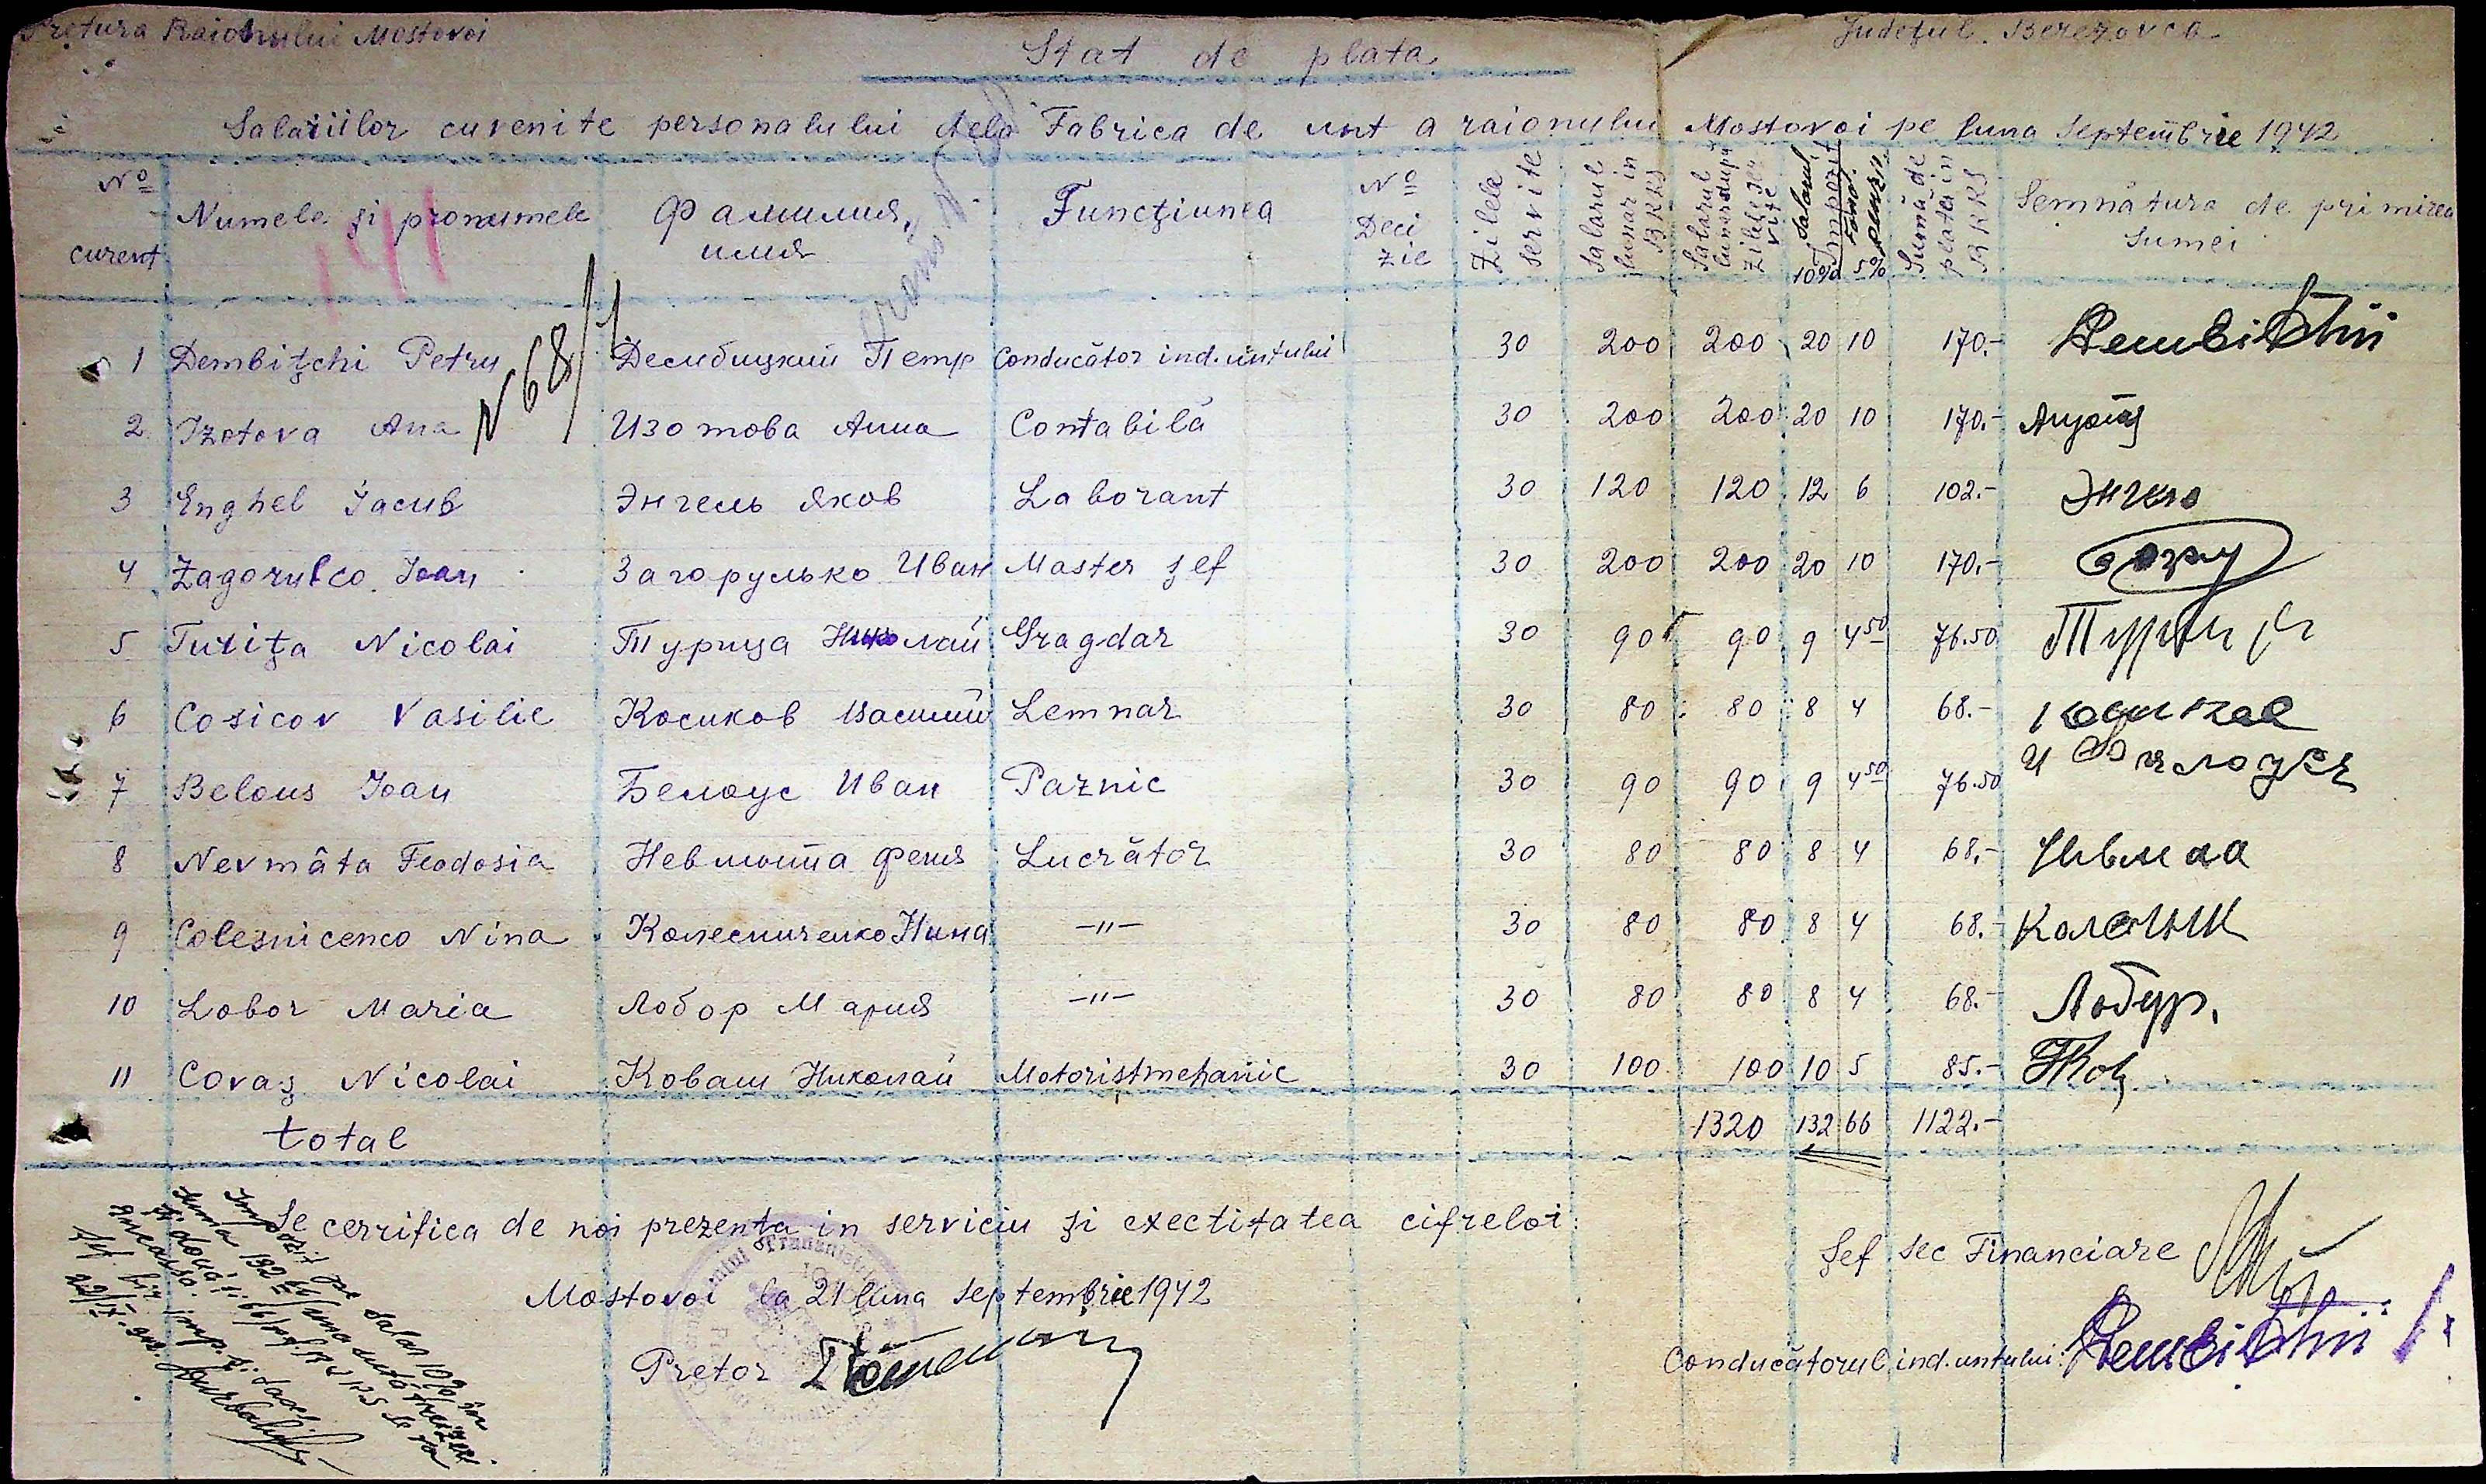 Pretura Raionului Mostovoi
Judeţul Berezovca
Stat de plata
Salariilor cuvenite personalului dela Fabrica de unt a raionului Mostovoi pe luna Septembrie 1942
№ curent Numele şi pronumele Фамилия, имя Funcţiunea № Deci zie Zilele servite Salarul lunar in RKKS Salarul lunar după zilele ser vite Impozit Salarul 10% Fond. Pensii 5% Sumă de plata in RKKS Semnătura de primirea sumei
141
N 68/
1 Dembiţchi Petru Дембицкий Петр Conducător ind. untului 30 200 200 20 10 170.-
2 Izotova Ana Изотова Анна Contabilă 30 200 200 20 10 170.-
3 Enghel Iacub Энгель Яков Laborant 30 120 120 12 6 102.- Энгель
4 Zagorulco Ioan Загорулько Иван Master şef 30 200 200 20 10 170.-
5 Turiţa Nicolai Турица Николай Gragdar 30 90 90 9 4 50 76.50 Турица
6 Cosicov Vasilie Косиков Василий Lemnar 30 80 80 8 4 68.-
7 Belous Ioan Белоус Иван Paznic 30 90 90 9 4 50 76.50
8 Nevmâta Feodosia Невмыта Феня Lucrător 30 80 80 8 4 68.-
9 Colesnicenco Nina Колесниченко Нина -"- 30 80 80 8 4 68.-
10 Lobor Maria Лобор Мария -"- 30 80 80 8 4 68.- Лобур.
11 Covaş Nicolai Коваш Николай Motorist mehanic 30 100 100 10 5 85.-
total 1320 132 66 1122.-
Se cerrifica de noi prezenţa in serviciu şi exectitatea cifrelor:
Mostovoi la 21 luna septembrie 1942
Pretor
Şef sec Financiare
Conducătorul ind. untului
Impozit pe salar 10% in
suma 132 66/una sută treizeci
şi două şi 66/ RKKS se va
incassa.
Şef. bir. imp. şi taxe:
22/IX.942.